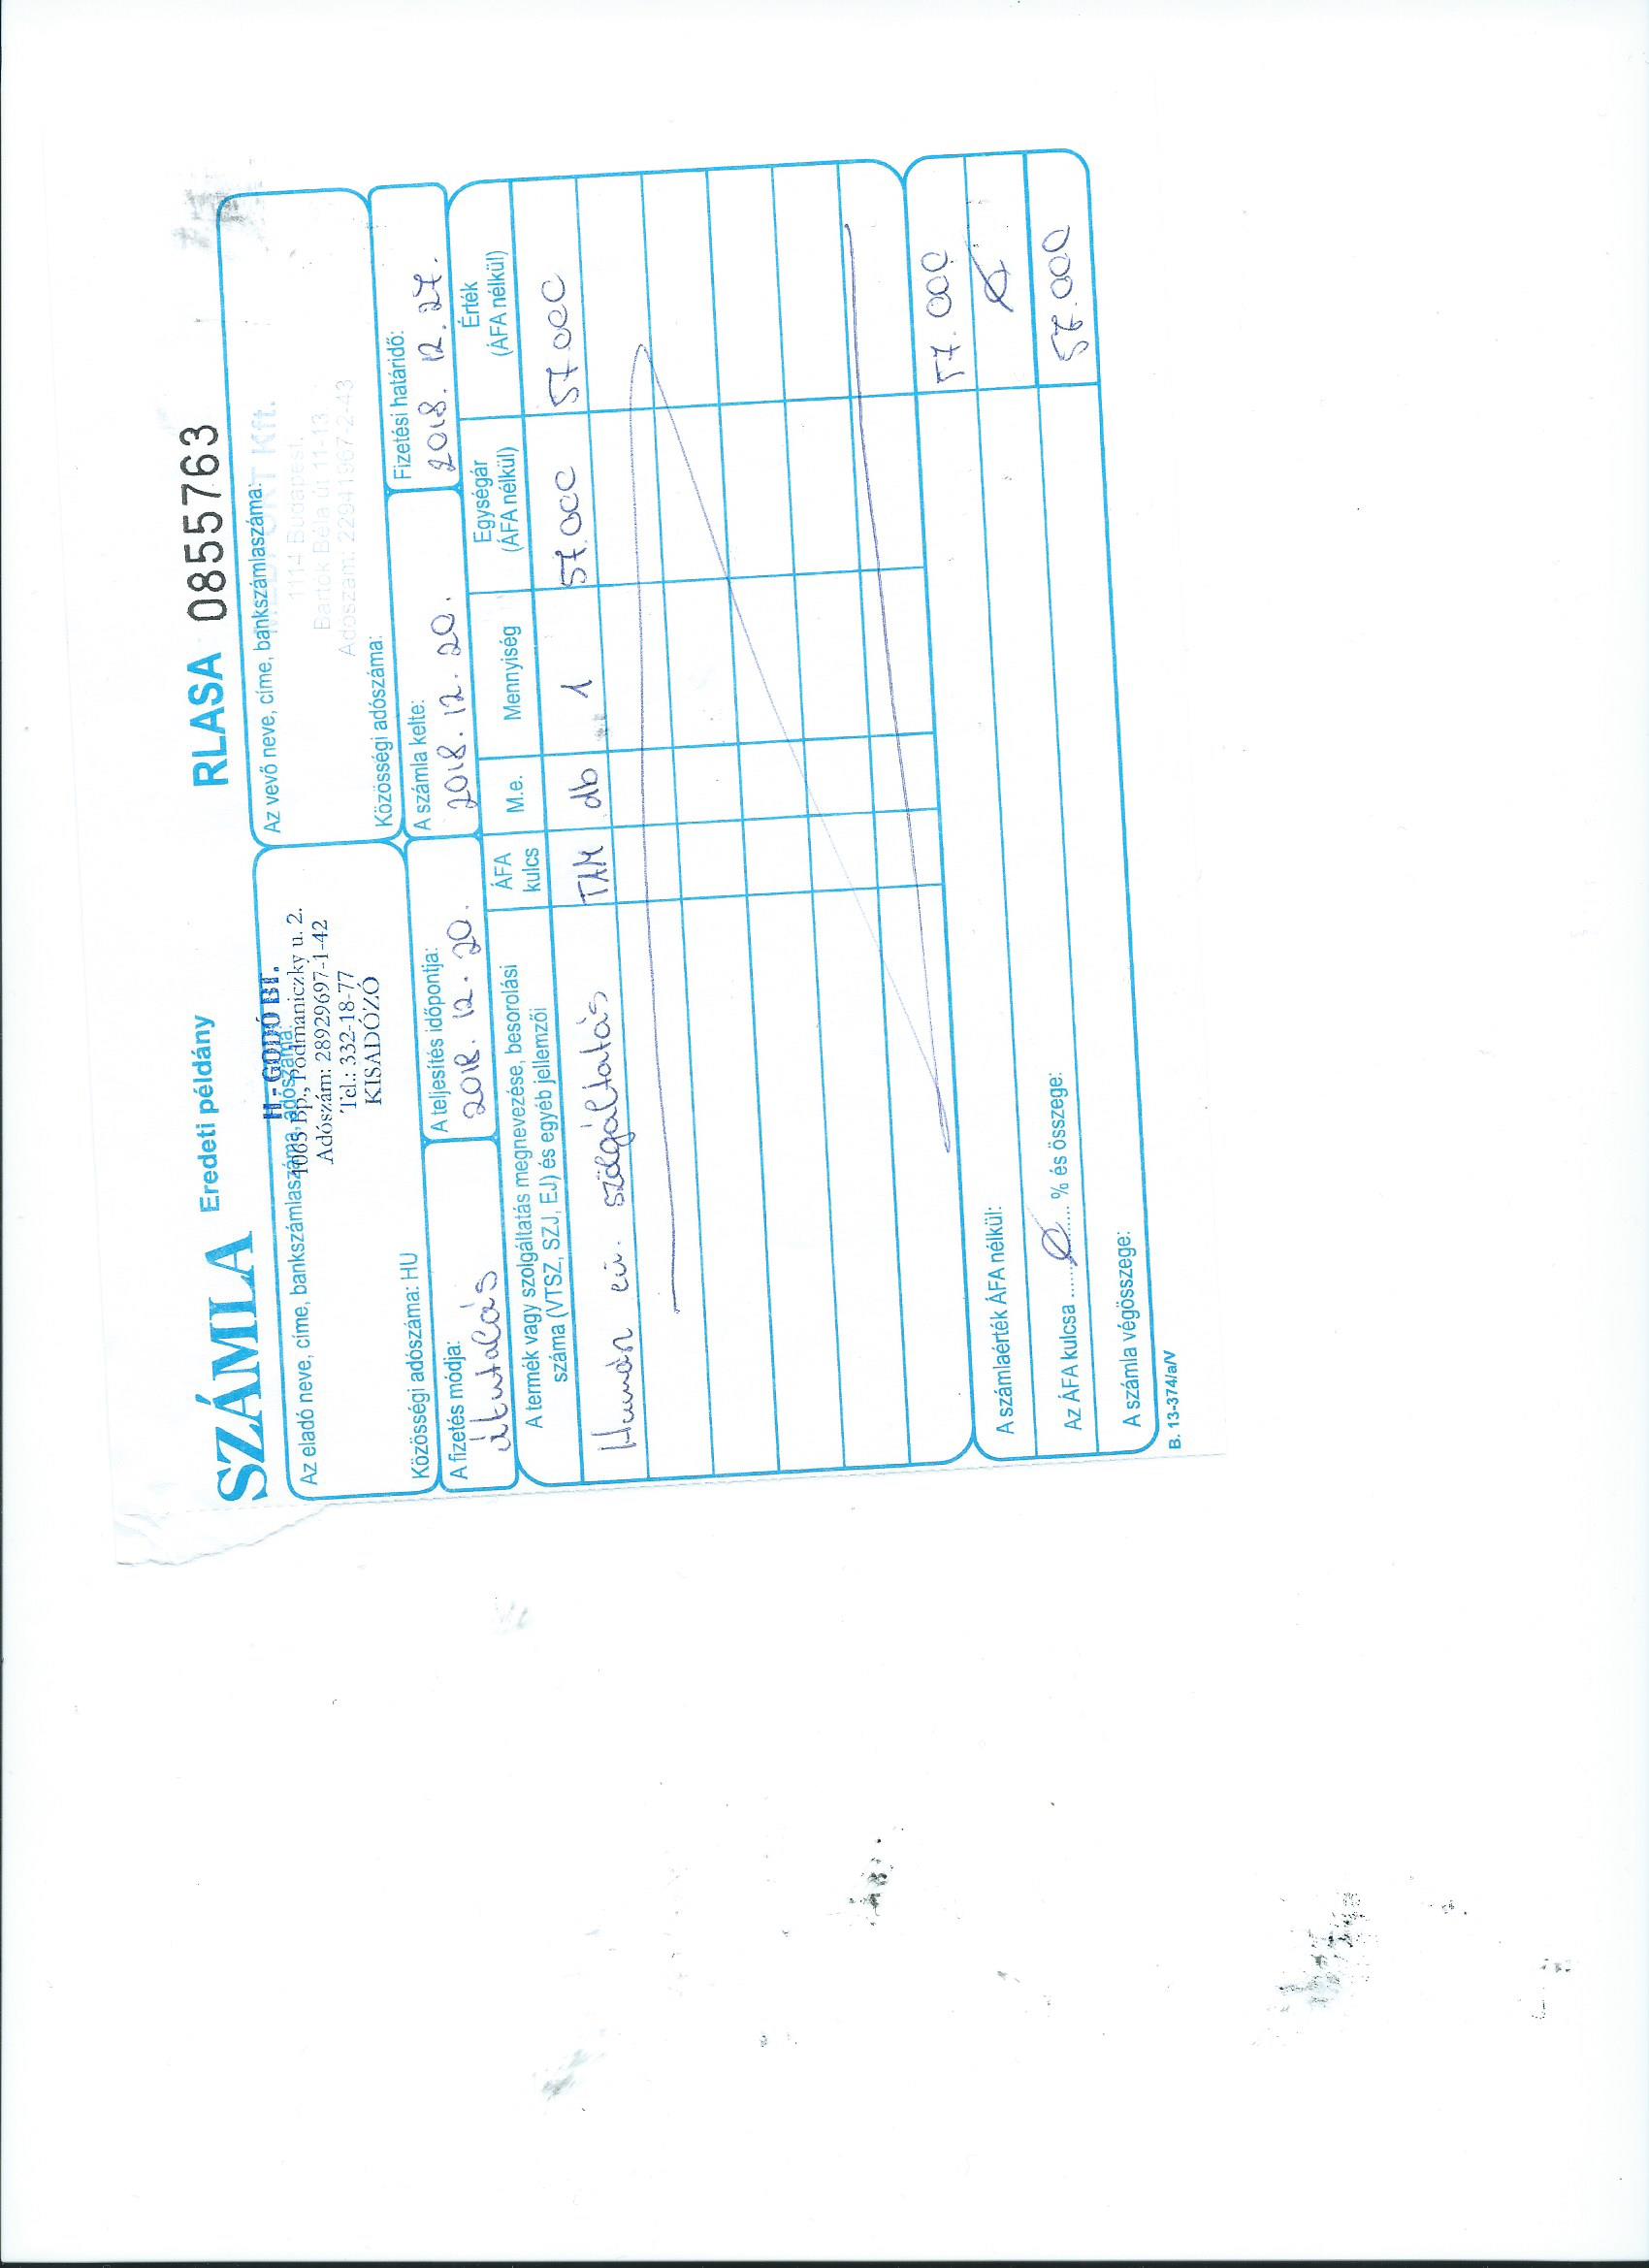 SZÁMLA Eredeti példány RLASA 0855763
Az eladó neve, címe, bankszámlaszáma, adószáma:
H-GODÓ BT.
1065 Bp., Podmaniczky u. 2.
Adószám: 28929697-1-42
Tel.: 332-18-77
KISADÓZÓ
Közösségi adószáma: HU
Az vevő neve, címe, bankszámlaszáma:
Kft.
1114 Budapest,
Bartók Béla út 11-13
Adószám: 22941967-2-43
Közösségi adószáma:
A fizetés módja:
átutalás
A teljesítés időpontja:
2018. 12. 20.
A számla kelte:
2018. 12. 20.
Fizetési határidő:
2018. 12. 27.
A termék vagy szolgáltatás megnevezése, besorolási
száma (VTSZ, SZJ, EJ) és egyéb jellemzői
ÁFA
kulcs
M.e.
Mennyiség
Egységár
(ÁFA nélkül)
Érték
(ÁFA nélkül)
Humán eü. szolgáltatás TAM db 1 57.000 57.000
A számlaérték ÁFA nélkül: 57.000
Az ÁFA kulcsa ............ % és összege:
A számla végösszege: 57.000
B. 13-374/a/V